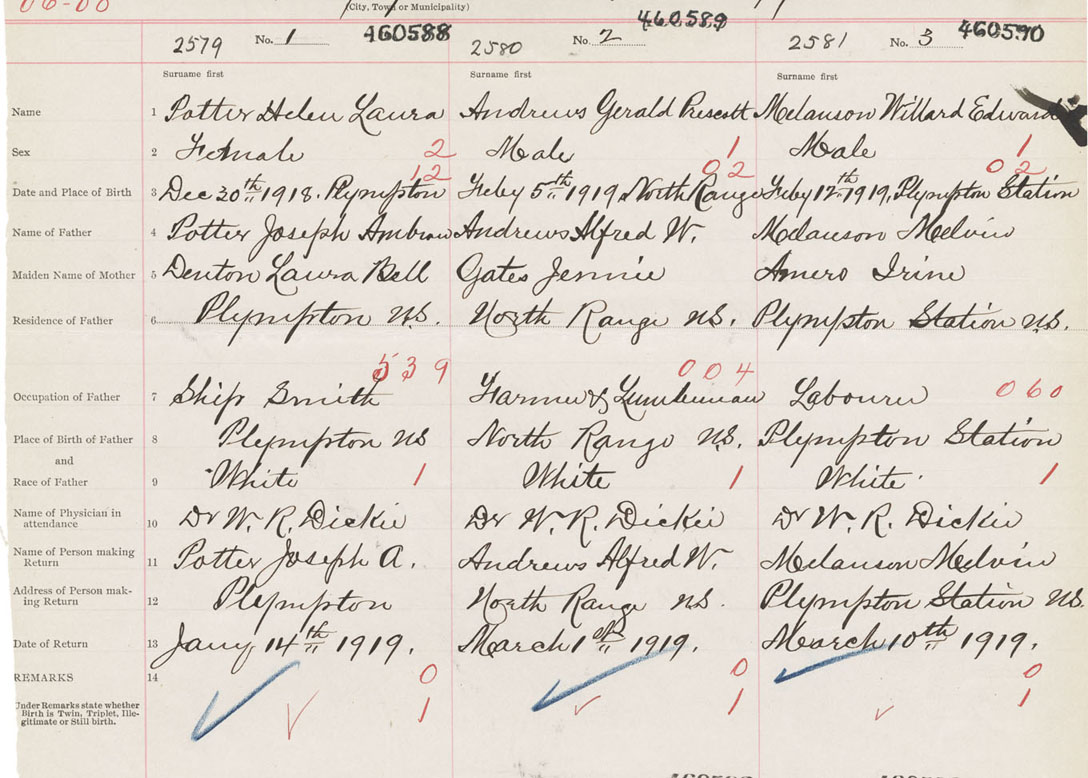 06-00
(City, Town or Municipality)
2579 No. 1 460588 2580 No. 2 460589 2581 No. 3 460590
Surname first Surname first Surname first
Name 1 Potter Helen Laura Andrews Gerald Prescott Melanson Willard Edward
Sex 2 Female 2 Male 1 Male 1
12 02 02
Date and Place of Birth 3 Dec 30th 1918. Plympton Feby 5th 1919, North Range Feby 12th 1919, Plympton Station
Name of Father 4 Potter Joseph Ambrose Andrews Alfred W. Melanson Melvin
Maiden Name of Mother 5 Denton Laura Bell Gates Jennie Amero Irine
Residence of Father 6 Plympton N.S. North Range N.S. Plympton Station N.S.
539 004
Occupation of Father 7 Ship Smith Farmer & Lumberman Labourer 060
Place of Birth of Father 8 Plympton NS North Range N.S. Plympton Station
and
Race of Father 9 White 1 White 1 White 1
Name of Physician in
attendance 10 Dr W. R. Dickie Dr W. R. Dickie Dr W. R. Dickie
Name of Person making
Return 11 Potter Joseph A. Andrews Alfred W. Melanson Melvin
Address of Person mak-
ing Return 12 Plympton North Range N.S. Plympton Station N.S.
Date of Return 13 Jany 14th 1919. March 1st 1919. March 10th 1919.
REMARKS 14 0 0 0
Under Remarks state whether
Birth is Twin, Triplet, Ille-
gitimate or Still birth. 1 1 1